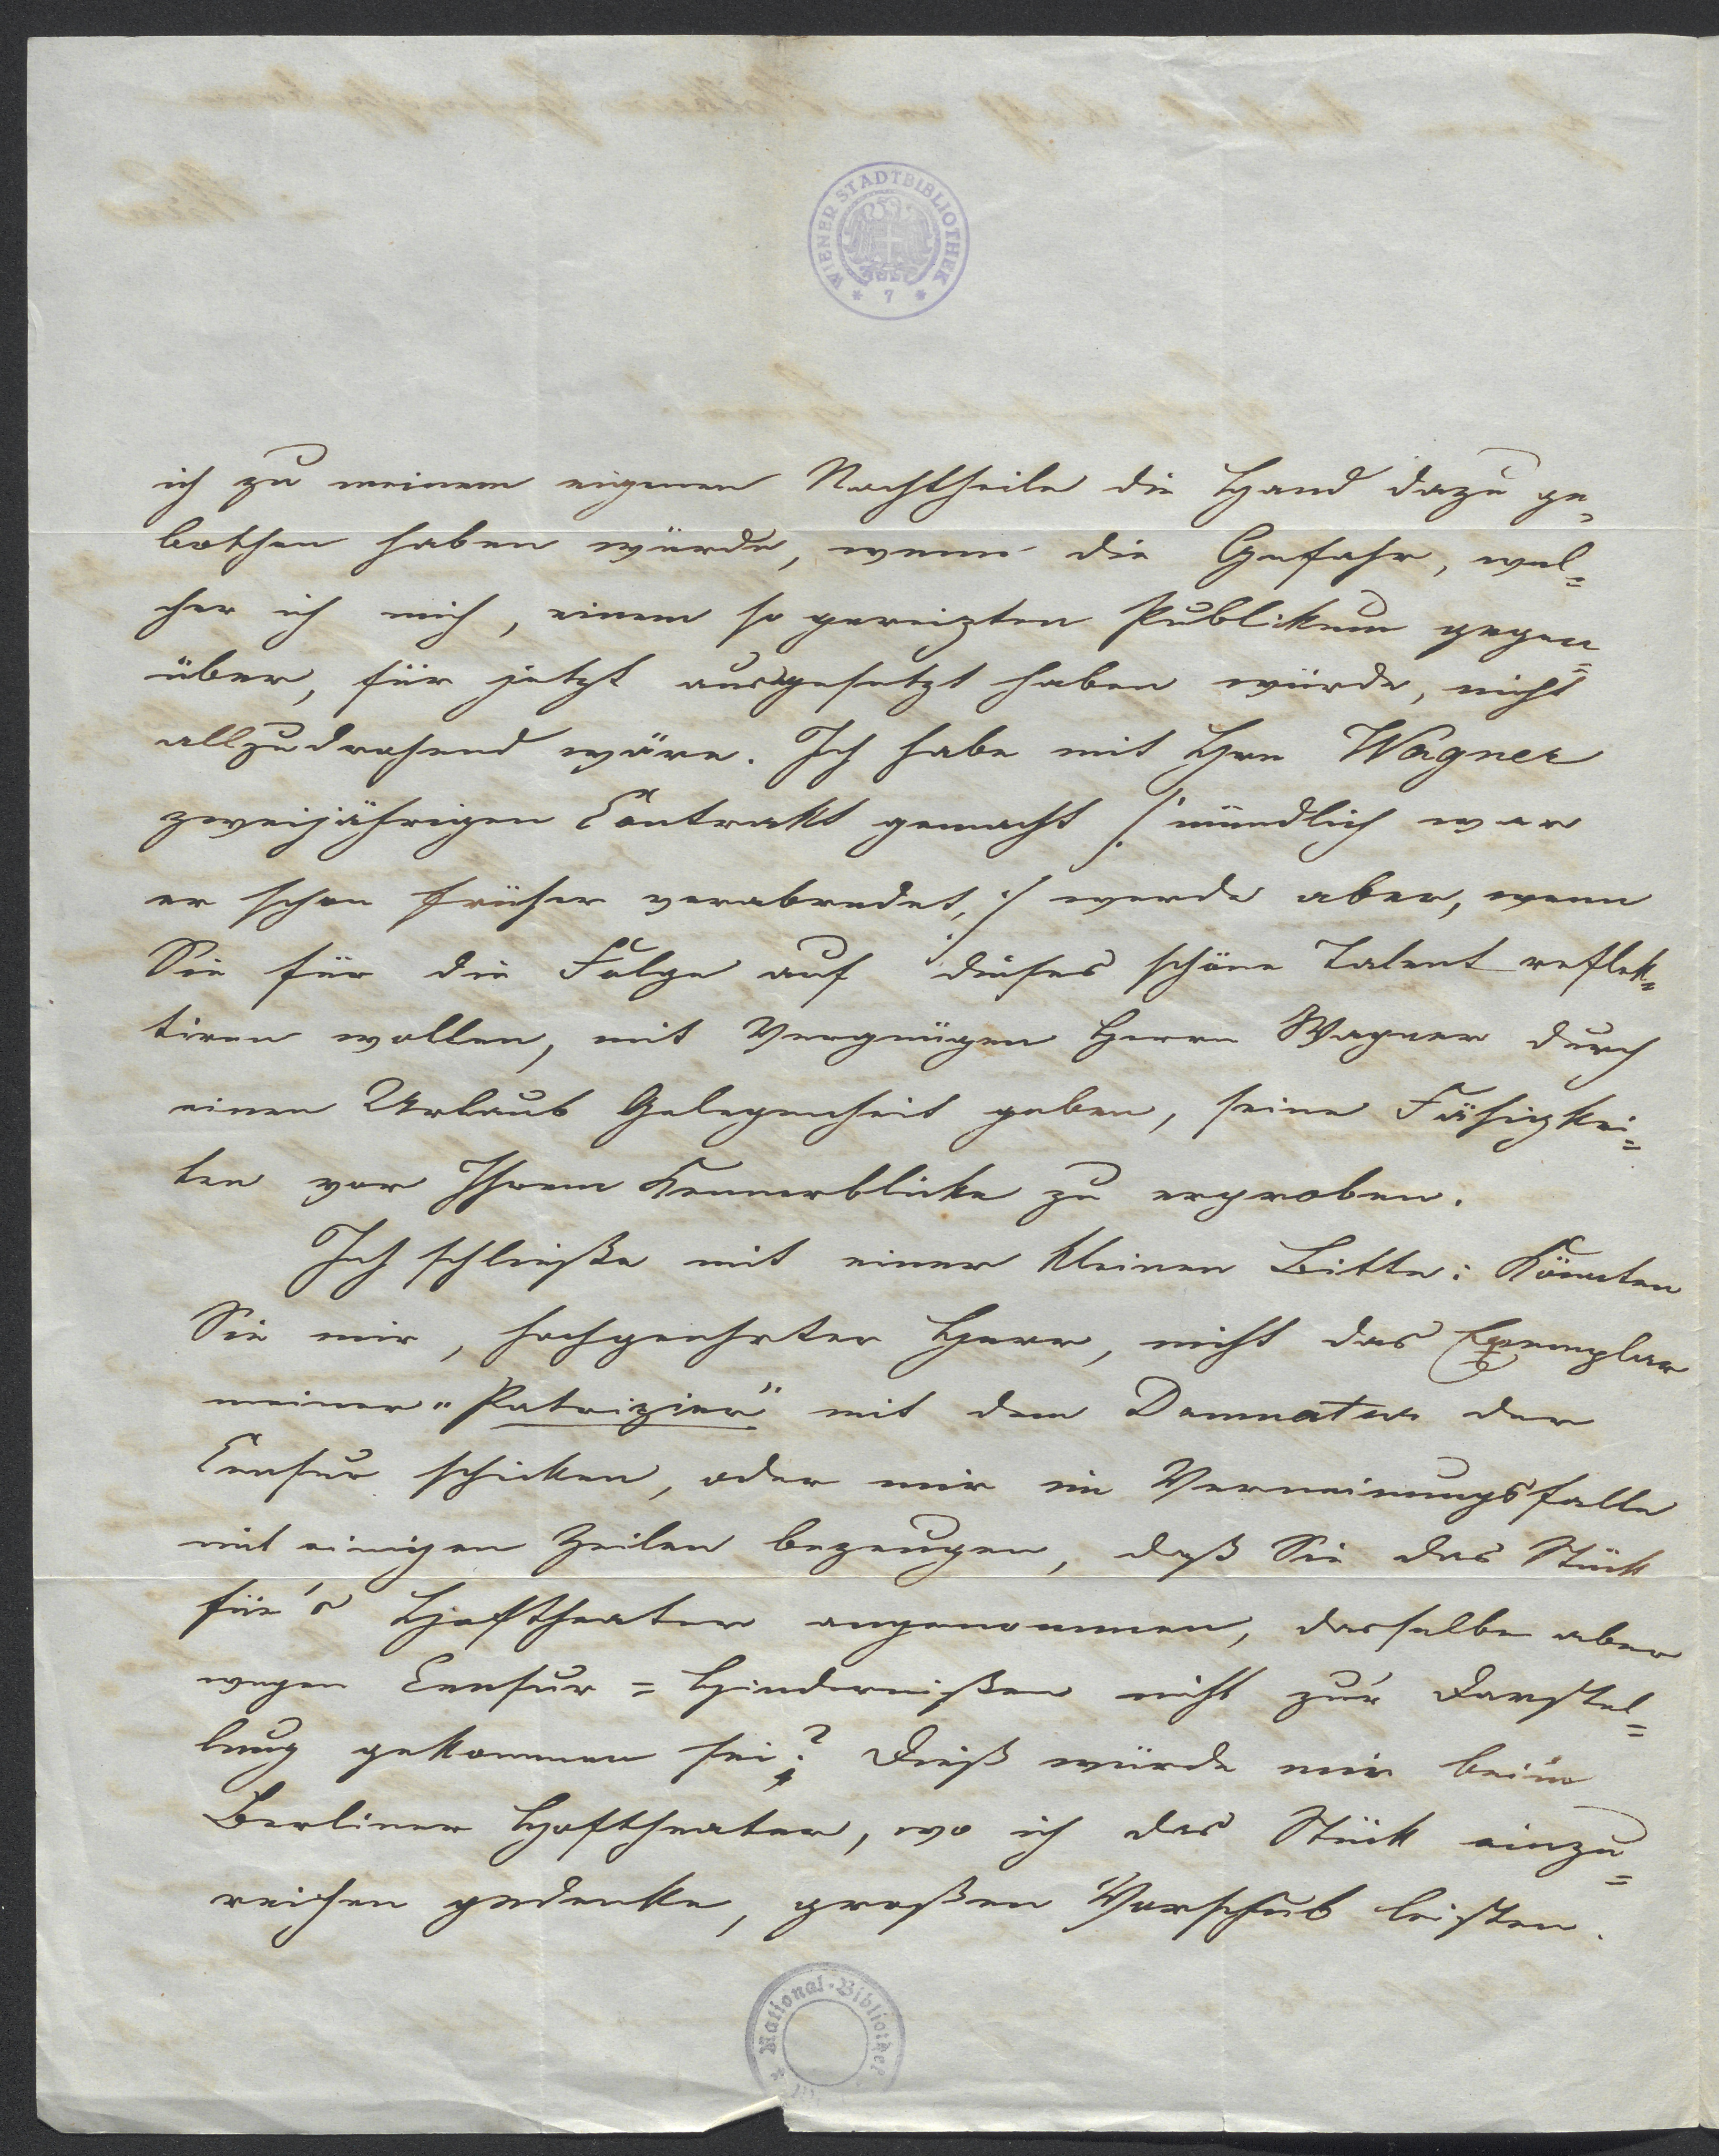 WIENER STADTBIBLIOTHEK
* 7 *
ich zu meinem eigenen Nachtheile die Hand dazu ge=
bothen haben würde, wenn die Gefahr, wel=
cher ich mich, einem so gereizten Publikum gegen=
über, für jetzt ausgesetzt haben würde, nicht
allzudrohend wäre. Ich habe mit Hrn Wagner
zweijährigen Contrakt gemacht /: mündlich war
er schon früher verabredet, :/ werde aber, wenn
Sie für die Folge auf dieses schöne Talent reflek=
tiren wollen, mit Vergnügen Herrn Wagner durch
einen Urlaub Gelegenheit geben, seine Fähigkei=
ten vor Ihrem Kennerblicke zu erproben.
Ich schließe mit einer kleinen Bitte: Könnten
Sie mir, hochgeehrter Herr, nicht das Exemplar
meiner „Patrizier" mit dem Damnatur der
Censur schicken, oder mir im Verneinungsfalle
mit einigen Zeilen bezeugen, daß Sie das Stück
für's Hoftheater angenommen, dasselbe aber
wegen Censur=Hindernißen nicht zur Darstel=
lung gekommen sei? Dieß würde mir beim
Berliner Hoftheater, wo ich das Stück einzu=
reichen gedenke, großen Vorschub leisten.
National-Bibliothek